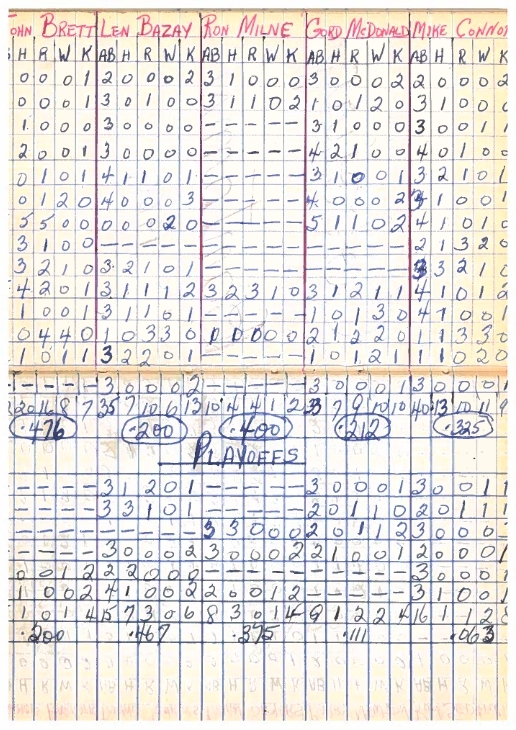 OHN BRETT LEN BAZAY RON MILNE GORD MCDONALD MIKE CONNO
H R W K AB H R W K AB H R W K AB H R W K AB H R W K
0 0 0 1 2 0 0 0 2 3 1 0 0 0 3 0 0 0 2 2 0 0 0 2
0 0 0 1 3 0 1 0 0 3 1 1 0 2 1 0 1 2 0 3 1 0 0 0
1 0 0 0 3 0 0 0 0 - - - - - 3 1 0 0 0 3 0 0 1 1
2 0 0 1 3 0 0 0 0 - - - - - 4 2 1 0 0 4 0 1 0 0
0 1 0 1 4 1 1 0 1 - - - - - 3 1 0 0 1 3 2 1 0 1
0 1 2 0 4 0 0 0 3 - - - - - 4 0 0 0 2 3 1 0 0 1
5 5 0 0 0 0 0 2 0 - - - - - 5 1 1 0 2 4 1 0 1 0
3 1 0 0 - - - - - - - - - - - - - - - 2 1 3 2 0
3 2 1 0 3 2 1 0 1 - - - - - - - - - - 3 3 2 1 0
4 2 0 1 3 1 1 1 2 3 2 3 1 0 3 1 2 1 1 4 1 0 1 2
1 0 0 1 3 1 1 0 1 - - - - - 1 0 1 3 0 4 1 0 0 1
0 4 4 0 1 0 3 3 0 0 0 0 0 0 2 1 2 2 0 1 1 3 3 0
1 0 1 1 3 2 2 0 1 - - - - - 1 0 1 2 1 1 1 0 2 0
- - - - 3 0 0 0 2 - - - - - 3 0 0 0 1 3 0 0 0 1
20 16 8 7 35 7 10 6 13 10 4 4 1 2 33 7 9 10 10 40 13 10 11 9
.476 .200 .400 .212 .325
PLAYOFFS
- - - - 3 1 2 0 1 - - - - - 3 0 0 0 1 3 0 0 1 1
- - - - 3 3 1 0 1 - - - - - 2 0 1 1 0 2 0 1 1 1
- - - - - - - - - 3 3 0 0 0 2 0 1 1 2 3 0 0 0
- - - - 3 0 0 0 2 3 0 0 0 2 2 1 0 0 1 2 0 0 0 1
0 0 1 2 2 2 0 0 0 - - - - - - - - - - 3 0 0 0 1
1 0 0 2 4 1 0 0 2 2 0 0 1 2 - - - - - 3 1 0 0 1
1 0 1 4 15 7 3 0 6 8 3 0 1 4 9 1 2 2 4 16 1 1 2 8
.200 .467 .375 .111 .063